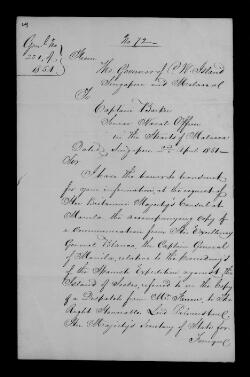 No 72
Genl. No
221. A.
1851.
From
The Governor of P. W. Island
Singapore and Malacca
To
Captain Barker
Senior Naval Officer
in the Straits of Malacca
Dated Singapore 2nd April 1851
Sir
I have the honor to transmit
for your information, at the request of
Her Britannic Majesty's Consul at
Manila, the accompanying Copy of
a Communication from His Excellency
General Blanco, the Captain General
of Manila, relative to the proceedings
of the Spanish Expedition against the
Island of Sooloo, referred to in the Copy
of a Despatch from Mr. to the
Right Honorable Lord Palmerston,
Her Majesty's Secretary of State for
Foreign